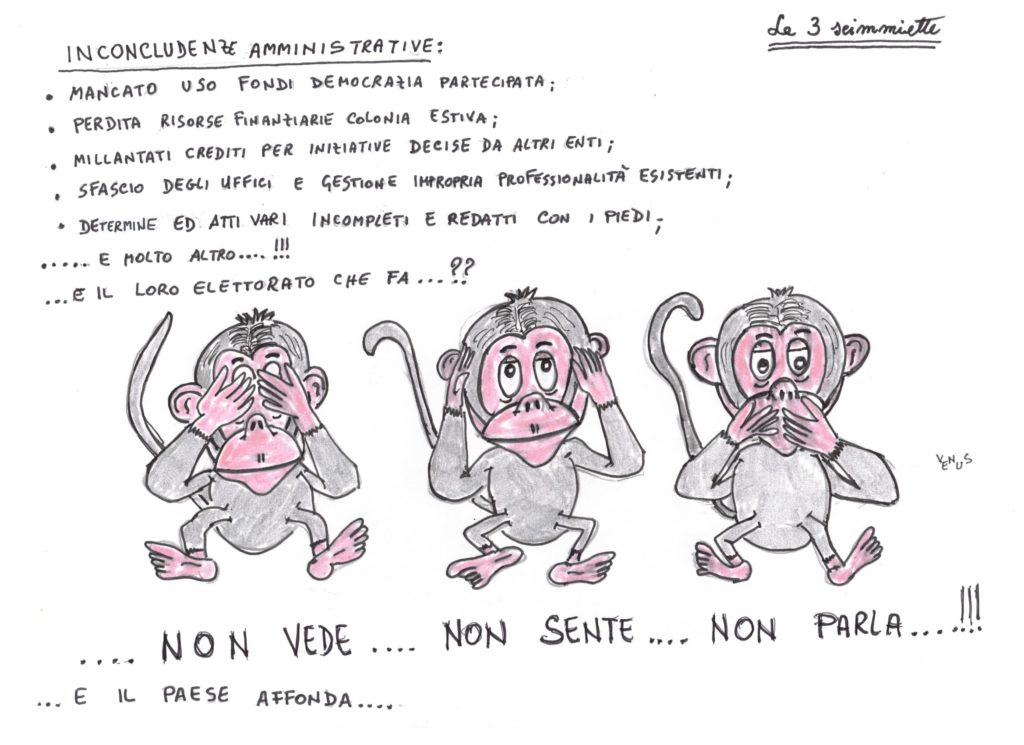 Le 3 scimmiette
INCONCLUDENZE AMMINISTRATIVE:
• MANCATO USO FONDI DEMOCRAZIA PARTECIPATA;
• PERDITA RISORSE FINANZIARIE COLONIA ESTIVA;
• MILLANTATI CREDITI PER INIZIATIVE DECISE DA ALTRI ENTI;
• SFASCIO DEGLI UFFICI E GESTIONE IMPROPRIA PROFESSIONALITÀ ESISTENTI;
• DETERMINE ED ATTI VARI INCOMPLETI E REDATTI CON I PIEDI;
..... E MOLTO ALTRO....!!!
...E IL LORO ELETTORATO CHE FA...??
VENUS
.... NON VEDE .... NON SENTE .... NON PARLA ....!!!
... E IL PAESE AFFONDA....